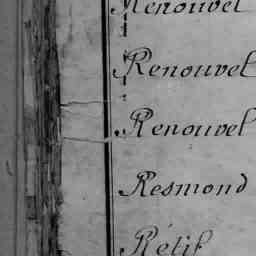 Renouvel
Renouvel
Renouvel
Resmond
Rétif